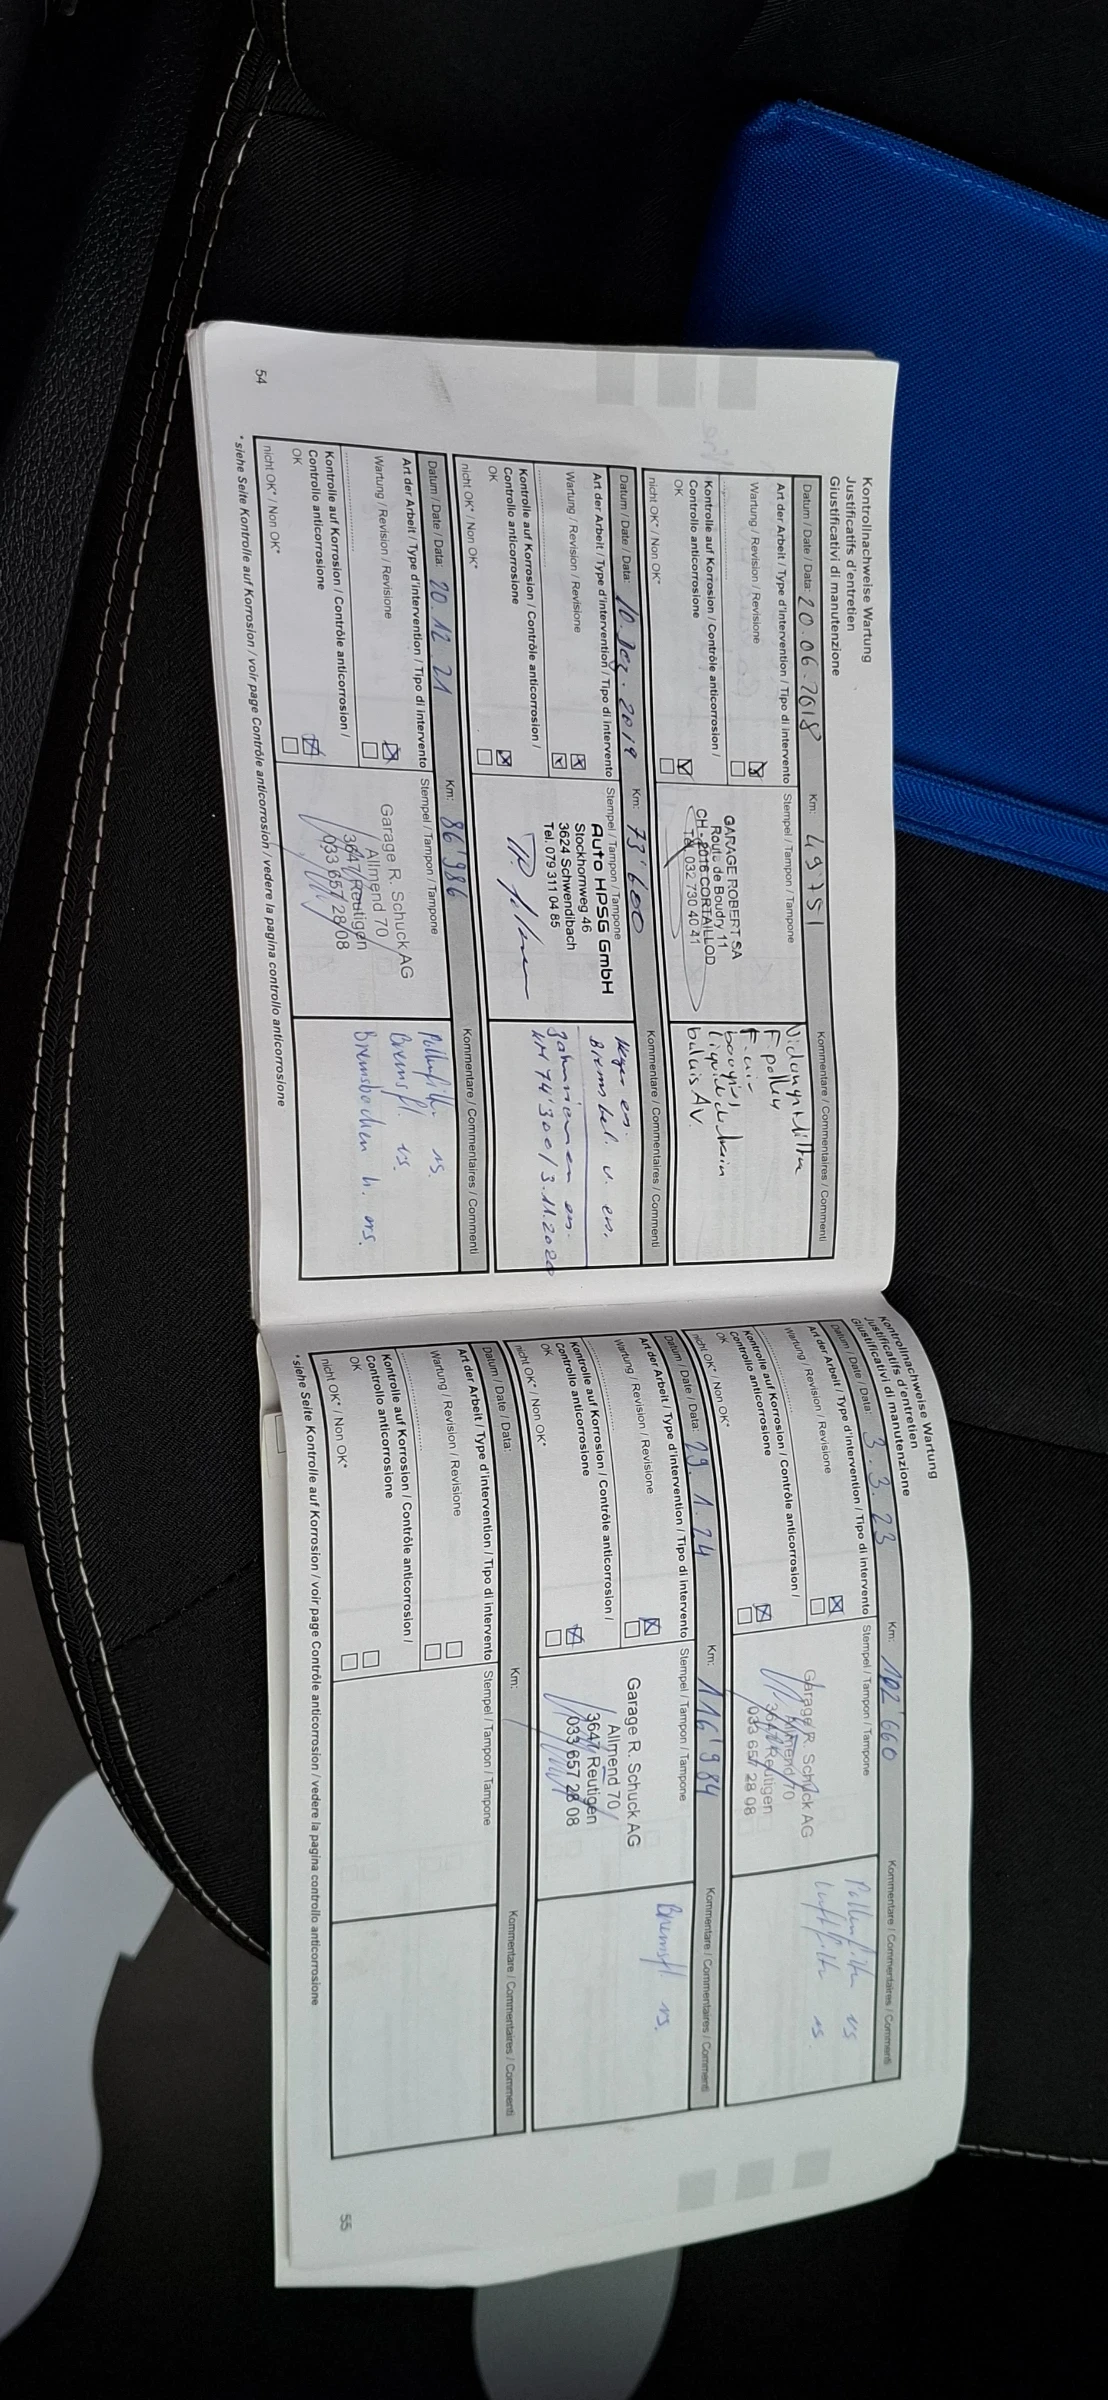 Kontrollnachweise Wartung
Justificatifs d'entretien
Giustificativi di manutenzione
Datum / Date / Data: 20.06.2018 Km: 49751 Kommentare / Commentaires / Commenti
Art der Arbeit / Type d'intervention / Tipo di intervento Stempel / Tampon / Tampone
Wartung / Revision / Revisione
Kontrolle auf Korrosion / Contrôle anticorrosion /
Controllo anticorrosione
OK
nicht OK* / Non OK*
GARAGE ROBERT SA
Route de Boudry 11
CH - 2016 CORTAILLOD
Tél. 032 730 40 41
F. pollen
F. air
bougies
liquide de frein
balais AV
Datum / Date / Data: 10. Dez. 2019 Km: 73'600 Kommentare / Commentaires / Commenti
Art der Arbeit / Type d'intervention / Tipo di intervento Stempel / Tampon / Tampone
Wartung / Revision / Revisione
Kontrolle auf Korrosion / Contrôle anticorrosion /
Controllo anticorrosione
OK
nicht OK* / Non OK*
Auto HPSG GmbH
Stockhornweg 46
3624 Schwendibach
Tel. 079 311 04 85
Bremsbel. v. ers.
Zahnriemen ers.
KM 74'300 / 3.11.2020
Datum / Date / Data: 20.12.21 Km: 86'986 Kommentare / Commentaires / Commenti
Art der Arbeit / Type d'intervention / Tipo di intervento Stempel / Tampon / Tampone
Wartung / Revision / Revisione
Kontrolle auf Korrosion / Contrôle anticorrosion /
Controllo anticorrosione
OK
nicht OK* / Non OK*
Garage R. Schuck AG
Allmend 70
3647 Reutigen
033 657 28 08
Pollenfilter ers.
Bremsfl. ers.
Bremsbacken h. ers.
* siehe Seite Kontrolle auf Korrosion / voir page Contrôle anticorrosion / vedere la pagina controllo anticorrosione
54
Kontrollnachweise Wartung
Justificatifs d'entretien
Giustificativi di manutenzione
Datum / Date / Data: 3.3.23 Km: 102'660 Kommentare / Commentaires / Commenti
Art der Arbeit / Type d'intervention / Tipo di intervento Stempel / Tampon / Tampone
Wartung / Revision / Revisione
Kontrolle auf Korrosion / Contrôle anticorrosion /
Controllo anticorrosione
OK
nicht OK* / Non OK*
Garage R. Schuck AG
Allmend 70
3647 Reutigen
033 657 28 08
Pollenfilter ers
Luftfilter ers.
Datum / Date / Data: 29.1.24 Km: 116'984 Kommentare / Commentaires / Commenti
Art der Arbeit / Type d'intervention / Tipo di intervento Stempel / Tampon / Tampone
Wartung / Revision / Revisione
Kontrolle auf Korrosion / Contrôle anticorrosion /
Controllo anticorrosione
OK
nicht OK* / Non OK*
Garage R. Schuck AG
Allmend 70
3647 Reutigen
033 657 28 08
Bremsfl ers.
Datum / Date / Data: Km: Kommentare / Commentaires / Commenti
Art der Arbeit / Type d'intervention / Tipo di intervento Stempel / Tampon / Tampone
Wartung / Revision / Revisione
Kontrolle auf Korrosion / Contrôle anticorrosion /
Controllo anticorrosione
OK
nicht OK* / Non OK*
* siehe Seite Kontrolle auf Korrosion / voir page Contrôle anticorrosion / vedere la pagina controllo anticorrosione
55